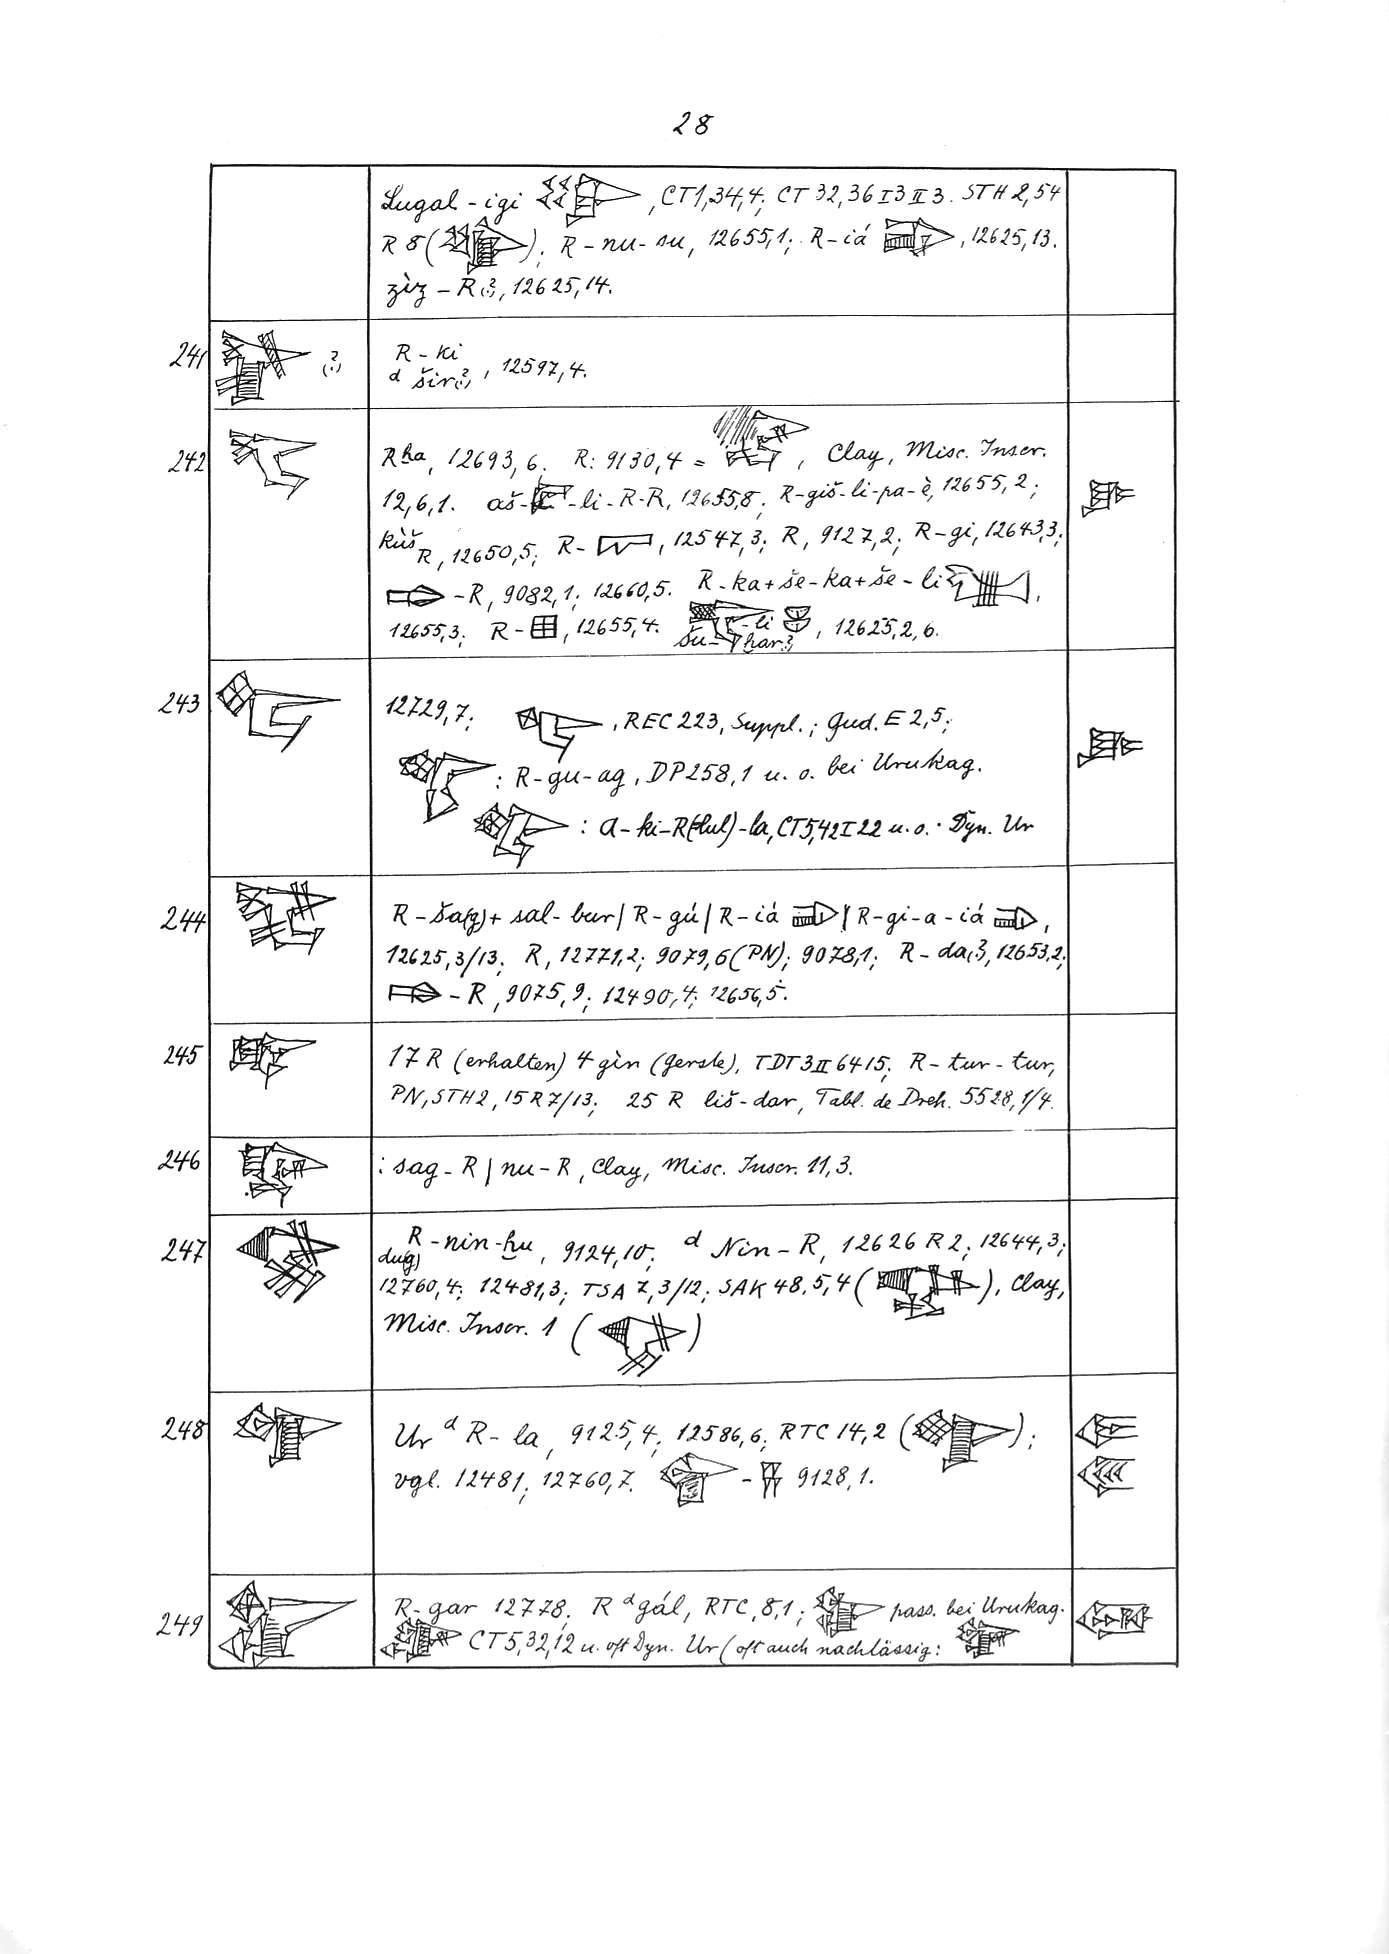 28
Lugal - igi , CT 1,34,4; CT 32,36 I 3 II 3. STH 2,54
R 8 ( ); R - nu - su, 12655,1; R - iá , 12625,13.
zìz - R(?), 12625,14.
241 (?) R - ki
d šir(?) , 12597,4.
242 R ḫa, 12693,6. R: 9130,4 = , Clay, Misc. Inscr.
12,6,1. aš- -li-R-R, 12655,8; R-giš-li-pa-è, 12655,2;
kùš R, 12650,5; R- , 12547,3; R, 9127,2; R-gi, 12643,3;
-R, 9082,1; 12660,5. R-ka+še-ka+še-li ,
12655,3; R- , 12655,4. šu- -li ḫar(?) , 12625,2,6.
243 12729,7; , REC 223, Suppl.; Gud. E 2,5;
: R-gu-ag, DP 258,1 u. o. bei Urukag.
: a-ki-R(hul)-la, CT 5,42 I 22 u. o. Dyn. Ur
244 R-ša(g)+sal-bur / R-gú / R-iá / R-gi-a-iá ,
12625,3/13; R, 12771,2; 9079,6 (PN); 9078,1; R-da(?), 12653,2;
-R, 9075,9; 12490,4; 12656,5.
245 17 R (erhalten) 4 gìn (Gerste), TDT 3 II 6415; R-tur-tur,
PN, STH 2, 15 R 7/13; 25 R liš-dar, Tabl. de Dreh. 5528,1/4.
246 : sag-R / nu-R, Clay, Misc. Inscr. 11,3.
247 R-nin-ḫu, 9124,10; d Nin-R, 12626 R 2; 12644,3;
du(g)
12760,4; 12481,3; TSA 7,3/12; SAK 48,5,4 ( ), Clay,
Misc. Inscr. 1 ( )
248 Ur d R-la, 9125,4; 12586,6; RTC 14,2 ( );
vgl. 12481; 12760,7. - 9128,1.
249 R-gar 12778; R d gál, RTC, 8,1; pass. bei Urukag.
CT 5,32,12 u. oft Dyn. Ur (oft auch nachlässig: